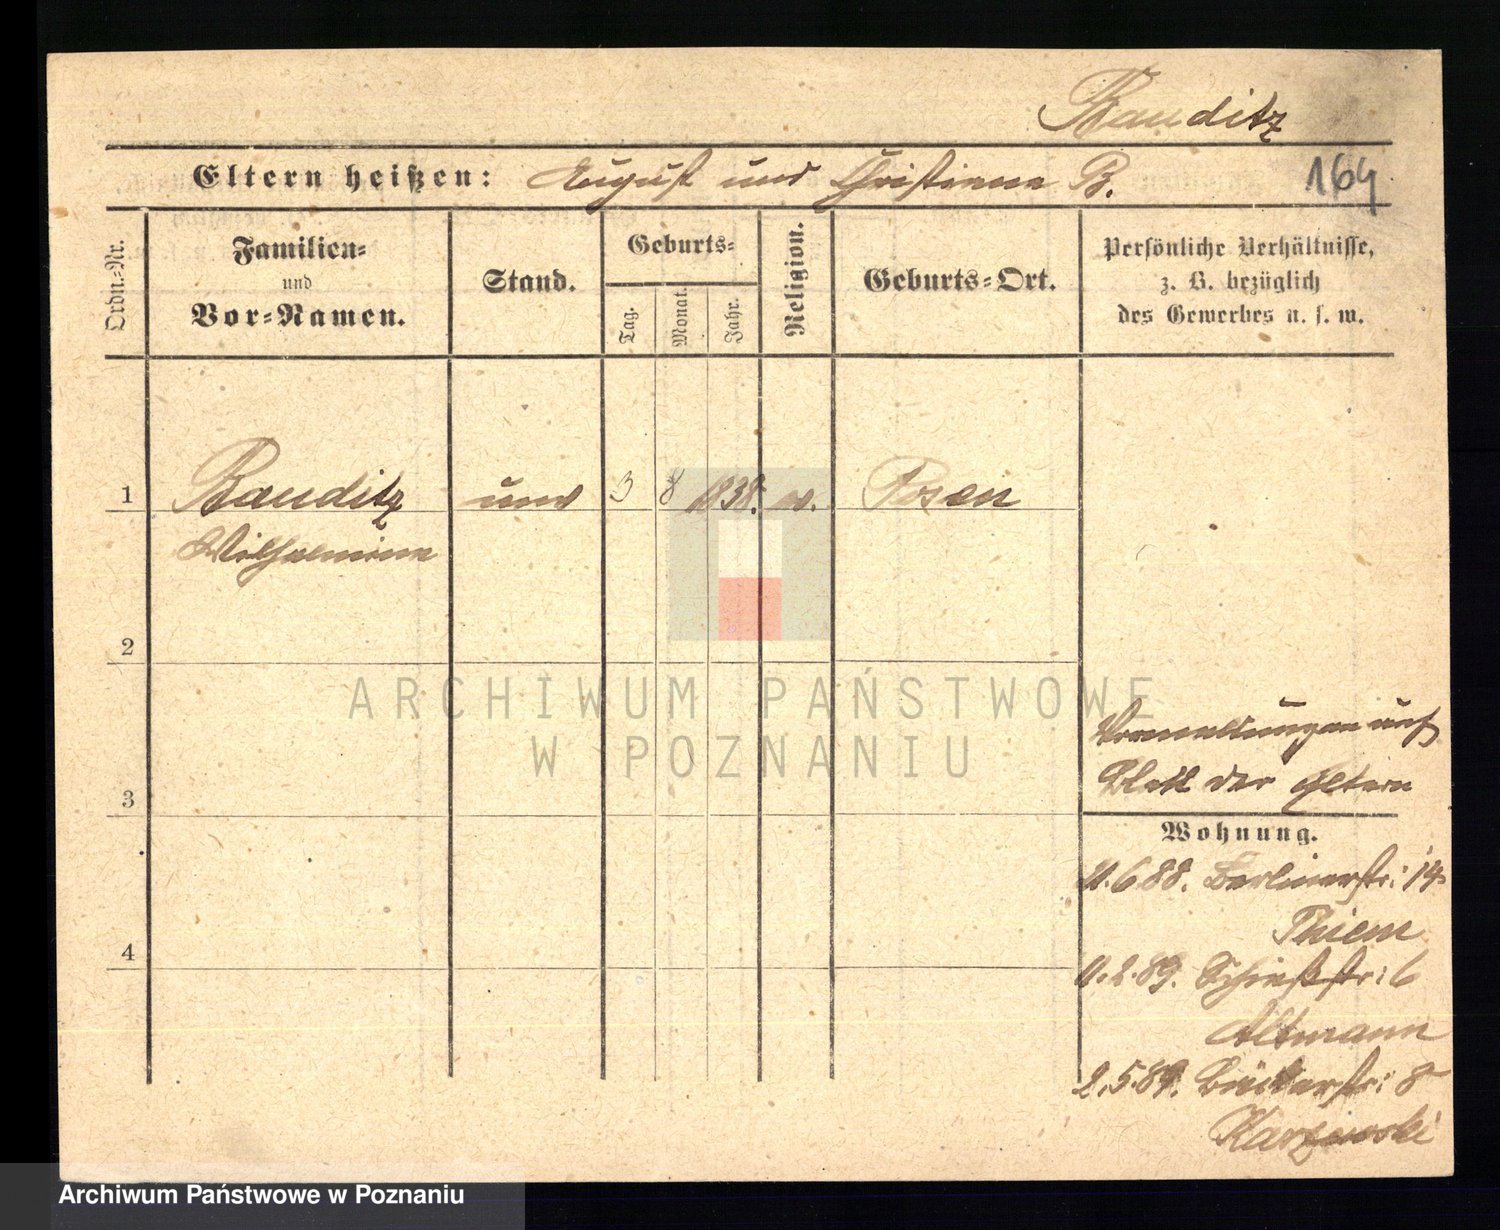 Bauditz
164
Eltern heißen: August und Christiane B.
Ordn.-Nr.
Familien-
und
Vor-Namen.
Stand.
Geburts-
Tag.
Monat.
Jahr.
Religion.
Geburts-Ort.
Persönliche Verhältnisse,
z. B. bezüglich
des Gewerbes u. s. w.
1 Bauditz 3 8 1838. ev. Posen
Wilhelmine
2
3
4
auf
Blatt der Eltern
Wohnung.
11.6.88. Berlinerstr: 14
Thiem
11.2.89. Schießstr: 6
Altmann
2.5.89. Bäckerstr: 8
ARCHIWUM PAŃSTWOWE
W POZNANIU
Archiwum Państwowe w Poznaniu